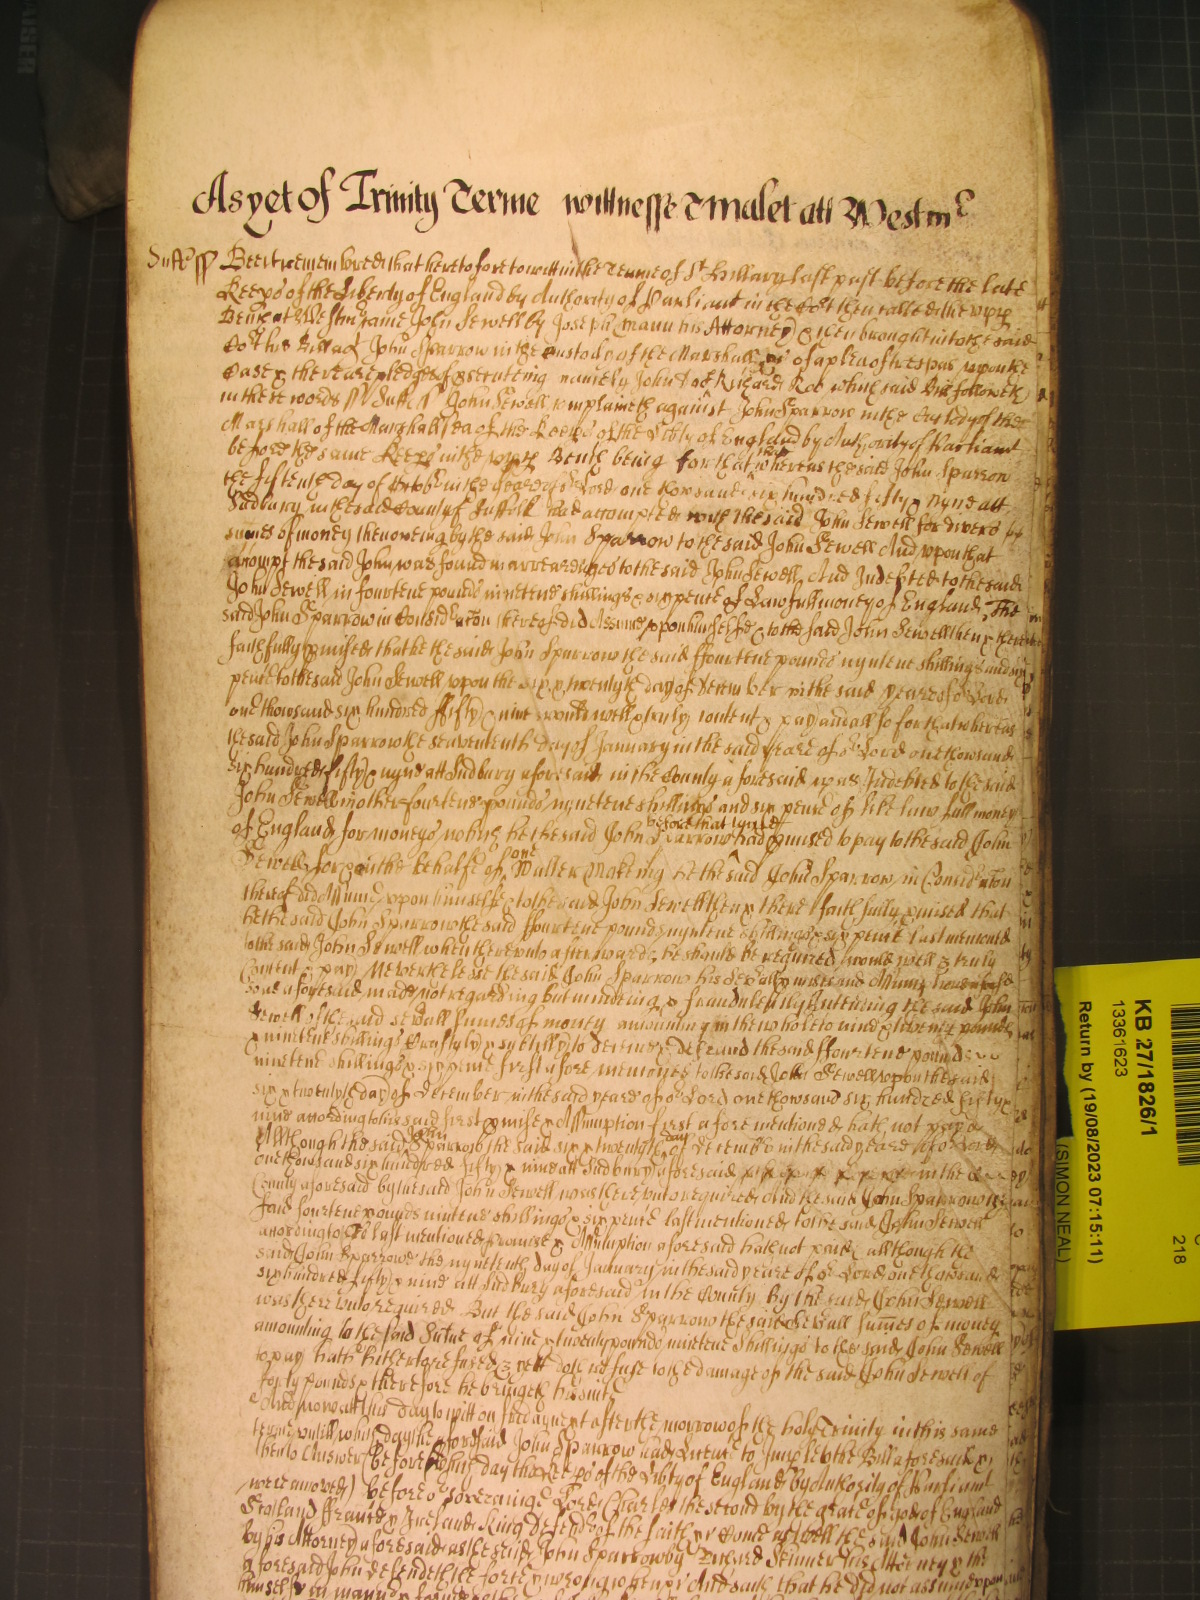 As yet of Trinity Terme wittnesse T Malet att Westmr
Suff ss Bee it remembred that heretofore to witt in the Terme of St Hillary last past before the late
Keeps of the Liberty of England by Authority of Parliamt in the Cort then called the uppr
Bench at Westmr came John Sewell by Joseph Mann his Attorney & then brought into the said
Cort his Bill agt John Sparrow in the custody of the Marshall &c of a plea of trespas upon the
Case & there are pledges of psecuteing namely John Doe & Richard Roo which said Bill followeth
in these words ss Suff ss John Sewell complaineth against John Sparrow in the Custody of the
Marshall of the Marshallsea of the Keeps of the Libty of England by Authority of Parliamt
before the same Keeps in the uppr Bench being for that whereas the said John Sparrow
the fifteenth day of Octobr in the yeare of or Lord one thowsand six hundred fifty & nyne att
Sudbury in the said County of Suffolk had accompted with the said John Sewell for divers
sumes of money then oweing by the said John Sparrow to the said John Sewell And upon that
accompt the said John was found in arrearages to the said John Sewell And Indebted to the said
John Sewell in fourtene pounds ninetene shillings & six pence of Lawfull money of England, The
said John Sparrow in Considracon thereof did Assume upon himselfe & to the said John Sewell then & there
faithfully pmised that he the said John Sparrow the said ffourtene pounds nyntene shillings and six
pence to the said John Sewell upon the six & twentyth day of December in the said yeare of or Lord
one thowsand six hundred ffifty & nine would well & truly content & pay and allso for that whereas
the said John Sparrow the seavententh day of January in the said yeare of or Lord one thowsand
six hundred fifty & nyne att Sudbury aforesaid in the County aforesaid was Indebted to the said
John Sewell in other fourtene pounds nynetene shillings and six pence of like lawfull money
of England for moneys which he the said John Sparrow before that tyme had pmised to pay to the said John
Sewell for & in the behalfe of one Walter Making he the said John Sparrow in Considracon
thereof did Assume upon himselfe & to the said John Sewell then & there faithfully pmised that
he the said John Sparrow the said ffourtene pounds nyntene shillings & six pence last menconed
to the said John Sewell when thereunto afterwards he should be required would well & truly
Content & pay Neverthelesse the said John Sparrow his sevall pmises and Assumpcons
aforesaid made not regarding but mindeing & fraudulently Intending the said John
Sewell of the said sevall sumes of money amounting in the whole to nine & twenty pounds
& ninetene shillings Craftyly & subtilly to deceave & defraud the said ffourtene pounds
ninetene shillings & six pence first afore menconed to the said John Sewell upon the said
six & twentyth day of December in the said yeare of or Lord one thowsand six hundred fifty &
nine according to his said first pmise & Assumption first afore mentioned hath not payd
Allthough the said John Sparrow the said six & twentyth day of Decembr in the said yeare of or Lord
one thowsand six hundred fifty & nine att Sudbury aforesaid in the
County aforesaid by the said John Sewell was thereunto required And the said John Sparrow the
said fourtene pounds nintene shillings & six pence last mentioned to the said John Sewell
according to his last mentioned promise & Assumption aforesaid hath not paid allthough the
said John Sparrowe the nynetenth day of January in the said yeare of or Lord one thowsand
six hundred fifty & nine att Sudbury aforesaid in the County by the said John Sewell
was thereunto required But the said John Sparrow the said sevall sumes of money
amounting to the said sume of nine & twenty pounds nintene shillings to the said John Sewell
to pay hath hitherto refused & yett doth refuse to the damage of the said John Sewell of
forty pounds & therefore he bringeth his suite
And now att this day to witt on friday next after the morrow of the holy Trinity in this same
terme untill which day the aforesaid John Sparrow had Licence to Imple to the Bill aforesaid &
then to Answer before which day the Keeps of the Libty of England by Authority of Parliamt
were amoved) before or soveraigne Lord Charles the second by the grace of god of England
Scotland ffrance & Ireland King Defendr of the faith &c Come as well the said John Sewell
by his Attorney aforesaid as the said John Sparrow by Richard Skinner his Attorney & the
aforesaid John defendeth the force & wrong when &c And saith that he did not assume upon
himselfe in manner & forme
KB 27/1826/1
13361623
Return by (19/08/2023 07:15:11)
(SIMON NEAL)
218